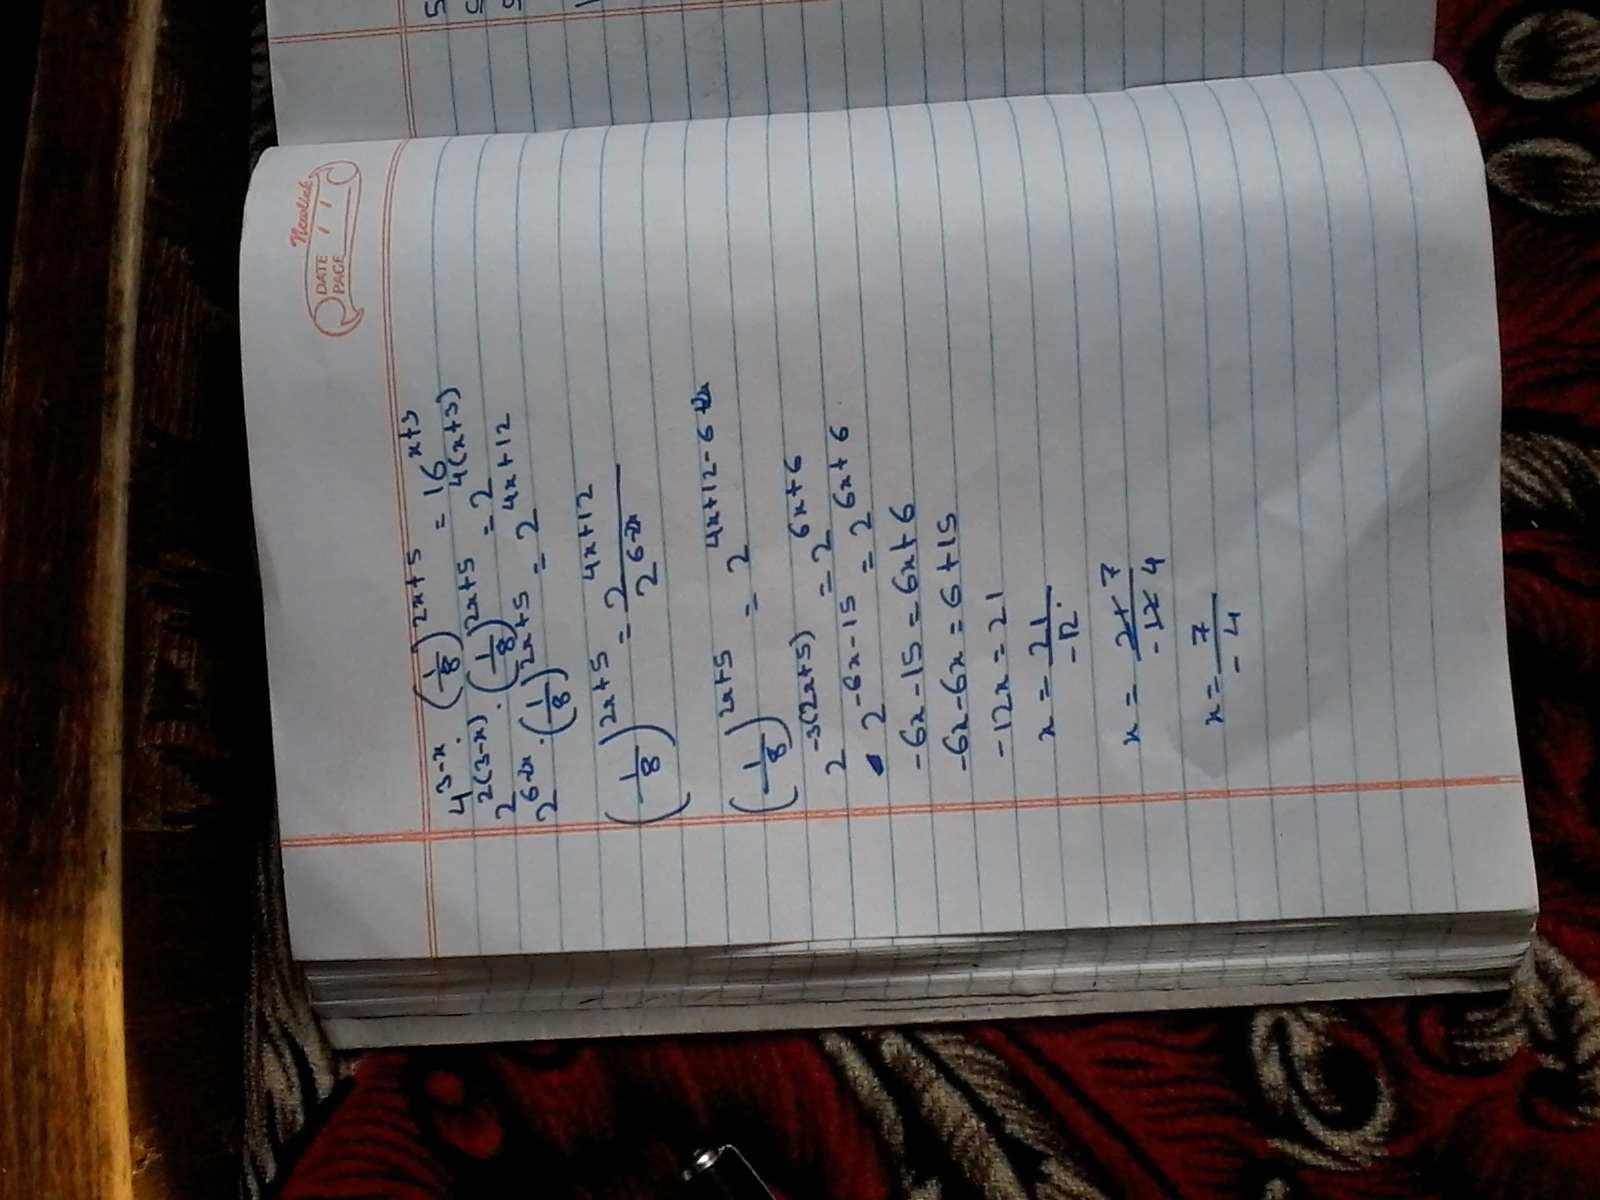 Newlish
DATE / /
PAGE
4^{3-x} . (1/8)^{2x+5} = 16^{x+3}
2^{2(3-x)} . (1/8)^{2x+5} = 2^{4(x+3)}
2^{6-2x} . (1/8)^{2x+5} = 2^{4x+12}
(1/8)^{2x+5} = 2^{4x+12} / 2^{6-2x}
(1/8)^{2x+5} = 2^{4x+12-6+2x}
2^{-3(2x+5)} = 2^{6x+6}
2^{-6x-15} = 2^{6x+6}
-6x-15 = 6x+6
-6x-6x = 6+15
-12x = 21
x = 21/-12.
x = 21 7/-12 4
x = 7/-4